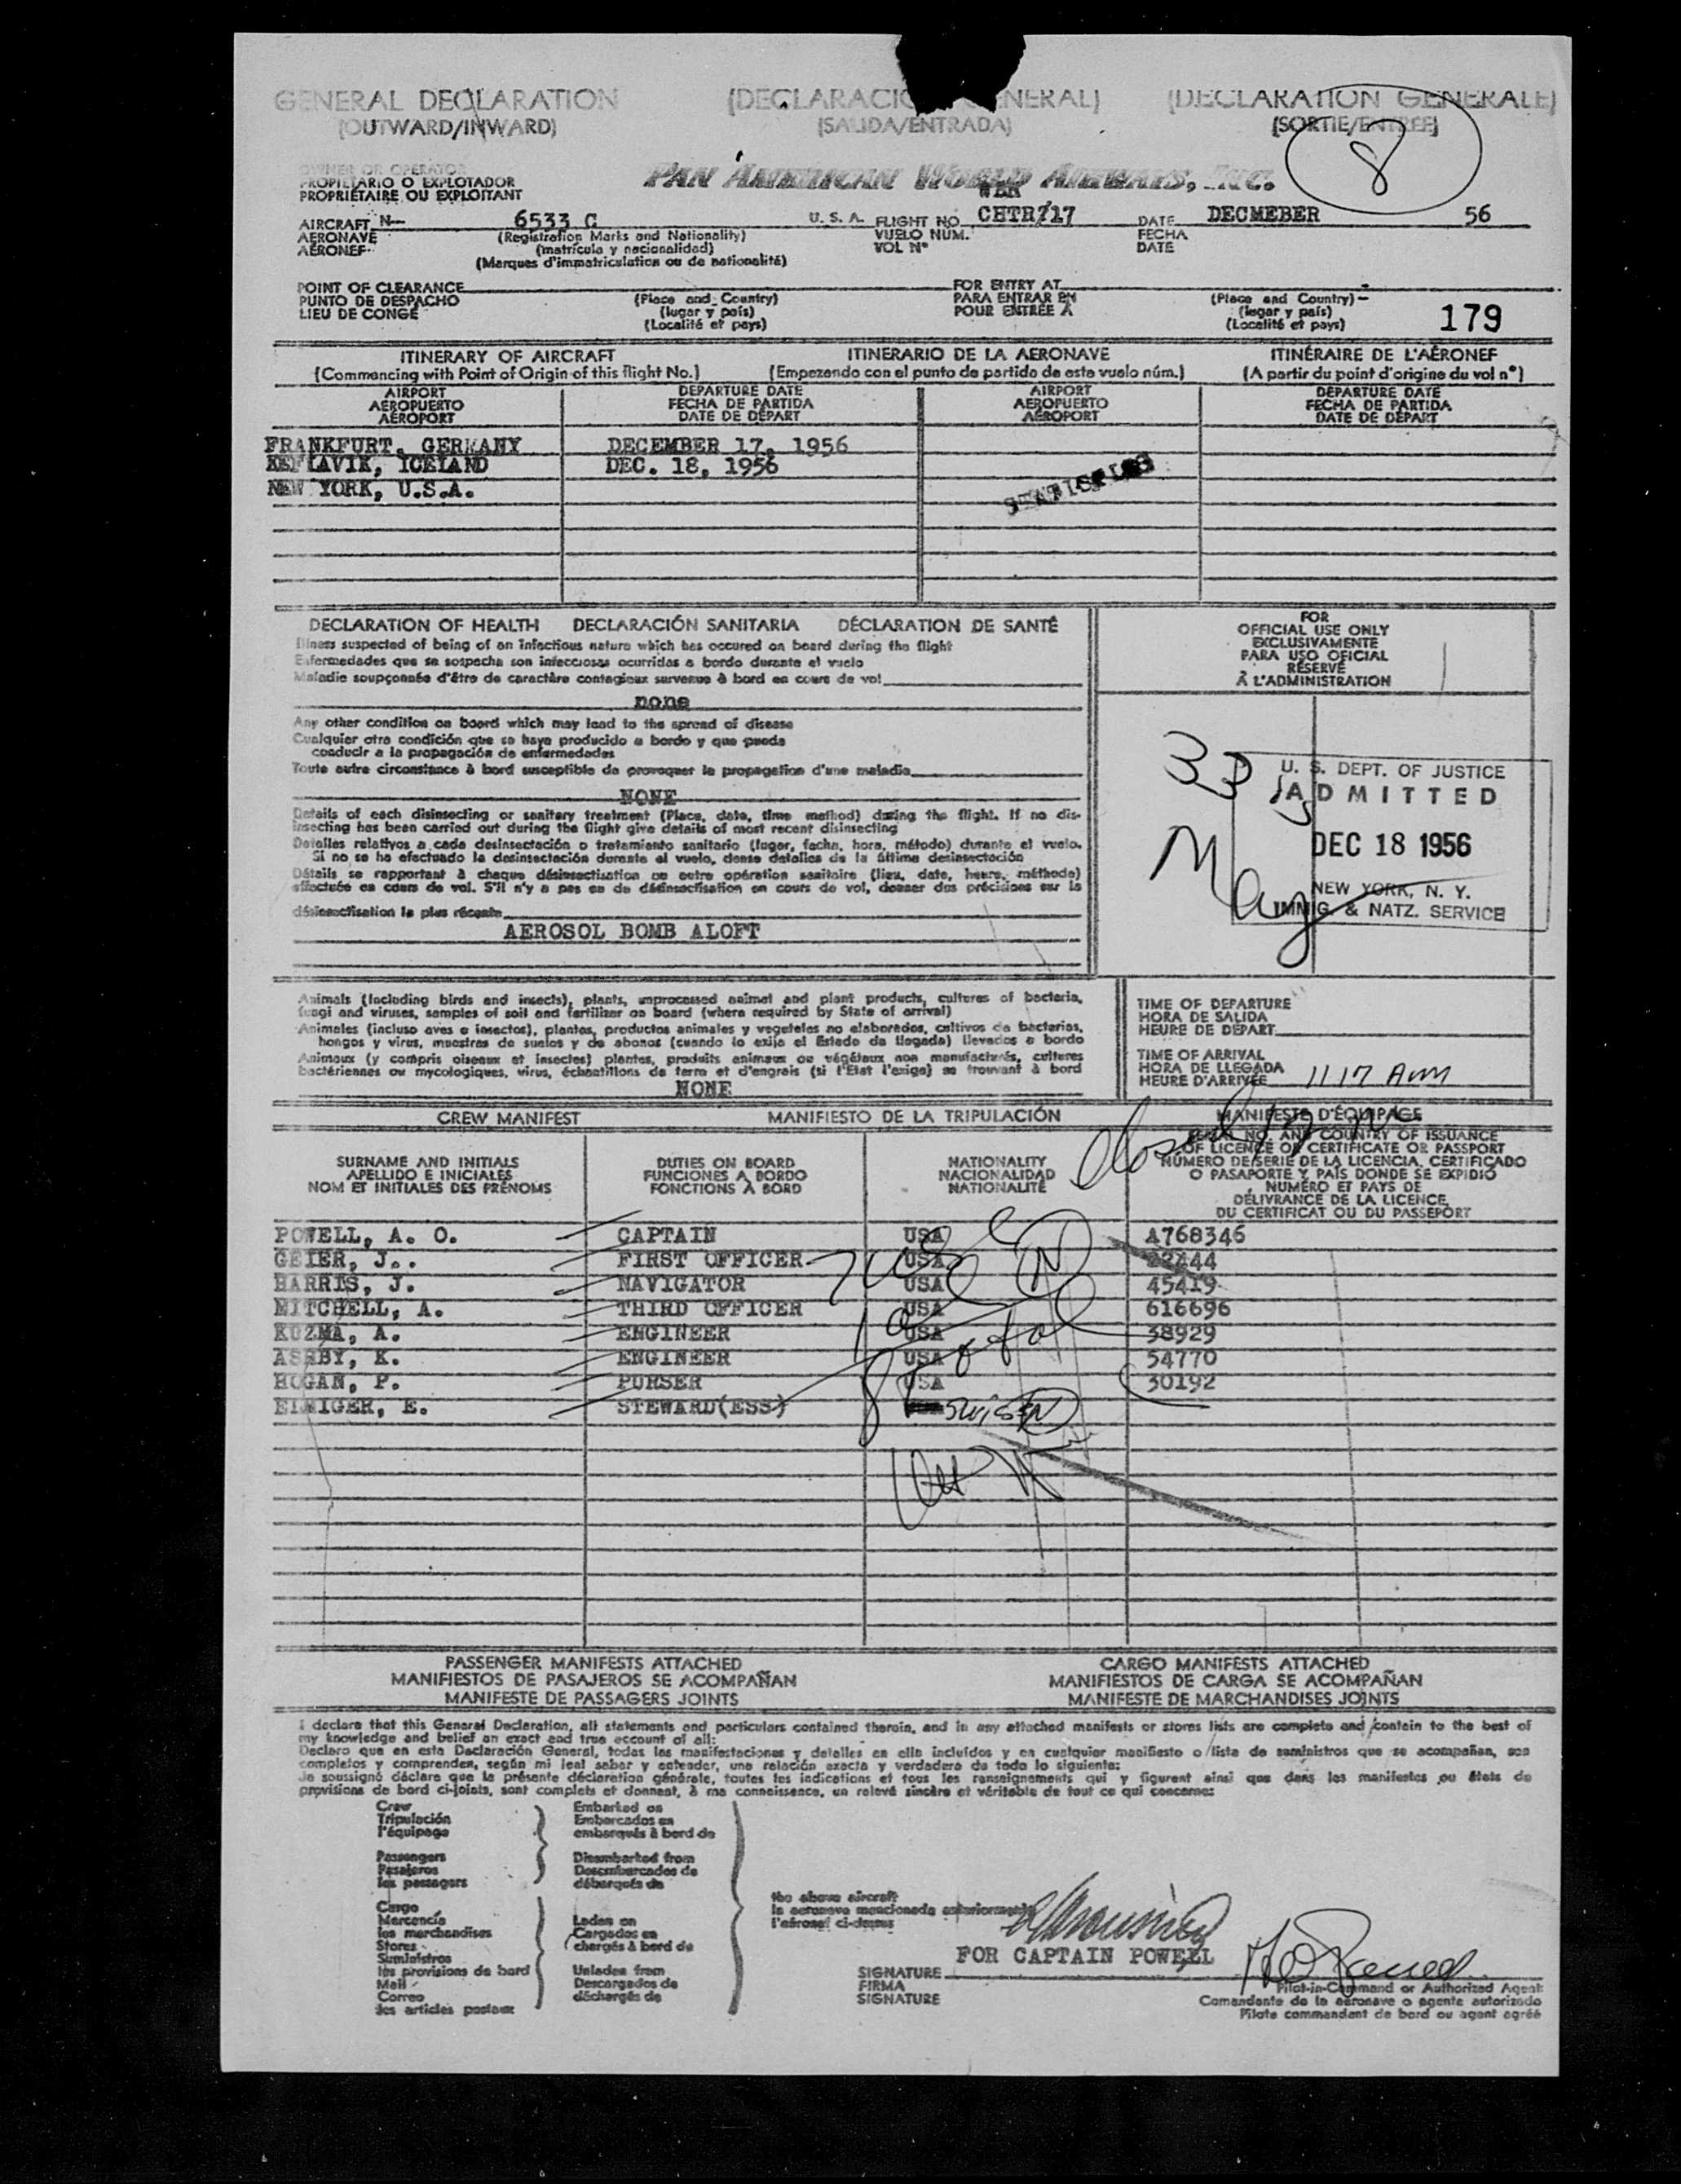 GENERAL DECLARATION (DECLARACIO ENERAL) (DECLARATION GENERALE)
(OUTWARD/INWARD) (SALIDA/ENTRADA) (SORTIE/ENTREE)
8
OWNER OR OPERATOR
PROPIETARIO O EXPLOTADOR
PROPRIETAIRE OU EXPLOITANT
PAN AMERICAN WORLD AIRWAYS, INC.
AIRCRAFT N— 6533 C U. S. A. FLIGHT NO. CHTR/17 DATE DECMEBER 56
AERONAVE (Registration Marks and Nationality) VUELO NUM. FECHA
AÉRONEF (matrícula y nacionalidad) VOL N° DATE
(Marques d'immatriculation ou de nationalité)
POINT OF CLEARANCE FOR ENTRY AT
PUNTO DE DESPACHO (Place and Country) PARA ENTRAR EN (Place and Country)
LIEU DE CONGÉ (lugar y país) POUR ENTRÉE À (lugar y país)
(Localité et pays) (Localité et pays) 179
ITINERARY OF AIRCRAFT ITINERARIO DE LA AERONAVE ITINÉRAIRE DE L'AÉRONEF
(Commencing with Point of Origin of this flight No.) (Empezando con el punto de partida de este vuelo núm.) (A partir du point d'origine du vol n°)
AIRPORT DEPARTURE DATE AIRPORT DEPARTURE DATE
AEROPUERTO FECHA DE PARTIDA AEROPUERTO FECHA DE PARTIDA
AÉROPORT DATE DE DÉPART AÉROPORT DATE DE DÉPART
FRANKFURT, GERMANY DECEMBER 17, 1956
KEFLAVIK, ICELAND DEC. 18, 1956
NEW YORK, U.S.A.
DECLARATION OF HEALTH DECLARACIÓN SANITARIA DÉCLARATION DE SANTÉ
Illness suspected of being of an infectious nature which has occured on board during the flight
Enfermedades que se sospecha son infecciosas ocurridas a bordo durante el vuelo
Maladie soupçonnée d'être de caractère contagieux survenue à bord en cours de vol
none
Any other condition on board which may lead to the spread of disease
Cualquier otra condición que se haya producido a bordo y que pueda
conducir a la propagación de enfermedades
Toute autre circonstance à bord susceptible de provoquer la propagation d'une maladie
NONE
Details of each disinsecting or sanitary treatment (Place, date, time method) during the flight. If no dis-
insecting has been carried out during the flight give details of most recent disinsecting
Detalles relativos a cada desinsectación o tratamiento sanitario (lugar, fecha, hora, método) durante el vuelo.
Si no se ha efectuado la desinsectación durante el vuelo, dense detalles de la última desinsectación
Détails se rapportant à chaque désinsectisation ou autre opération sanitaire (lieu, date, heure, méthode)
effectuée en cours de vol. S'il n'y a pas eu de désinsectisation en cours de vol, donner des précisions sur la
désinsectisation la plus récente
AEROSOL BOMB ALOFT
FOR
OFFICIAL USE ONLY
EXCLUSIVAMENTE
PARA USO OFICIAL
RÉSERVÉ
À L'ADMINISTRATION
33
U. S. DEPT. OF JUSTICE
ADMITTED
DEC 18 1956
NEW YORK, N. Y.
IMMIG. & NATZ. SERVICE
Animals (Including birds and insects), plants, unprocessed animal and plant products, cultures of bacteria,
fungi and viruses, samples of soil and fertilizer on board (where required by State of arrival)
Animales (incluso aves e insectos), plantas, productos animales y vegetales no elaborados, cultivos de bacterias,
hongos y virus, muestras de suelos y de abonos (cuando lo exija el Estado de llegada) llevados a bordo
Animaux (y compris oiseaux et insectes) plantes, produits animaux ou végétaux non manufacturés, cultures
bactériennes ou mycologiques, virus, échantillons de terre et d'engrais (si l'État l'exige) se trouvant à bord
NONE
TIME OF DEPARTURE
HORA DE SALIDA
HEURE DE DÉPART
TIME OF ARRIVAL
HORA DE LLEGADA
HEURE D'ARRIVÉE 1117 AM
CREW MANIFEST MANIFIESTO DE LA TRIPULACIÓN MANIFESTE D'ÉQUIPAGE
SURNAME AND INITIALS
APELLIDO E INICIALES
NOM ET INITIALES DES PRÉNOMS
DUTIES ON BOARD
FUNCIONES A BORDO
FONCTIONS À BORD
NATIONALITY
NACIONALIDAD
NATIONALITÉ
SERIAL NO. AND COUNTRY OF ISSUANCE
OF LICENCE OR CERTIFICATE OR PASSPORT
NÚMERO DE SERIE DE LA LICENCIA, CERTIFICADO
O PASAPORTE Y PAÍS DONDE SE EXPIDIÓ
NUMÉRO ET PAYS DE
DÉLIVRANCE DE LA LICENCE,
DU CERTIFICAT OU DU PASSEPORT
POWELL, A. O. CAPTAIN USA A768346
GEIER, J. FIRST OFFICER USA
HARRIS, J. NAVIGATOR USA 45419
MITCHELL, A. THIRD OFFICER USA 616696
KUZMA, A. ENGINEER USA 38929
ASHBY, K. ENGINEER USA 54770
HOGAN, P. PURSER USA 30192
STEWARD(ESS) SWISS
PASSENGER MANIFESTS ATTACHED CARGO MANIFESTS ATTACHED
MANIFIESTOS DE PASAJEROS SE ACOMPAÑAN MANIFIESTOS DE CARGA SE ACOMPAÑAN
MANIFESTE DE PASSAGERS JOINTS MANIFESTE DE MARCHANDISES JOINTS
I declare that this General Declaration, all statements and particulars contained therein, and in any attached manifests or stores lists are complete and contain to the best of
my knowledge and belief an exact and true account of all:
Declaro que en esta Declaración General, todas las manifestaciones y detalles en ella incluídos y en cualquier manifiesto o lista de suministros que se acompañan, son
completos y comprenden, según mi leal saber y entender, una relación exacta y verdadera de todo lo siguiente:
Je soussigné déclare que la présente déclaration générale, toutes les indications et tous les renseignements qui y figurent ainsi que dans les manifestes ou états de
provisions de bord ci-joints, sont complets et donnent, à ma connaissance, un relevé sincère et véritable de tout ce qui concerne:
Crew Embarked on
Tripulación Embarcados en
l'équipage embarqués à bord de
Passengers Disembarked from
Pasajeros Desembarcados de
les passagers débarqués de
Cargo
Mercancía Laden on
les marchandises Cargados en
Stores chargés à bord de
Suministros
les provisions de bord Unladen from
Mail Descargados de
Correo déchargés de
les articles postaux
the above aircraft
la aeronave mencionada anteriormente
l'aéronef ci-dessus
FOR CAPTAIN POWELL
SIGNATURE
FIRMA
SIGNATURE
Pilot-in-Command or Authorized Agent
Comandante de la aeronave o agente autorizado
Pilote commandant de bord ou agent agréé